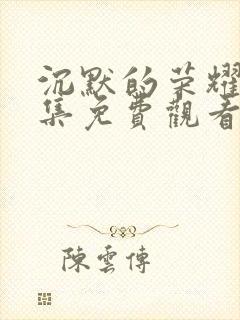 沉默的荣耀
集免費觀看
陳雲傳